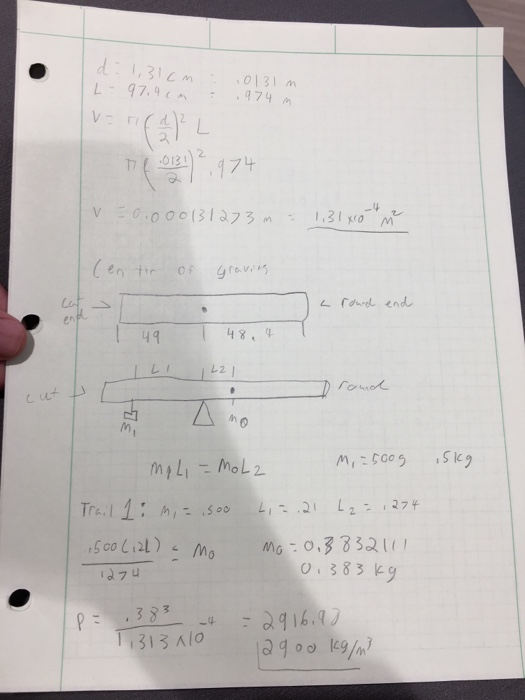 d = 1,31 cm = .0131 m
L = 97.4 cm = .974 m
V = π(d/2)² L
π(.0131/2)² .974
V = 0.000131273 m = 1.31 x10⁻⁴ m²
Center of gravity
cut end → ← round end
49 48.4
L1 L2
cut → round
M₁ M₀
M₁L₁ = M₀L₂ M₁ = 500g .5kg
Trail 1: M₁ = .500 L₁ = .21 L₂ = .274
.500(.21)/.274 = M₀ M₀ = 0.3832111
0.383 kg
ρ = .383/1.313 x10⁻⁴ = 2916.98
2900 kg/m³